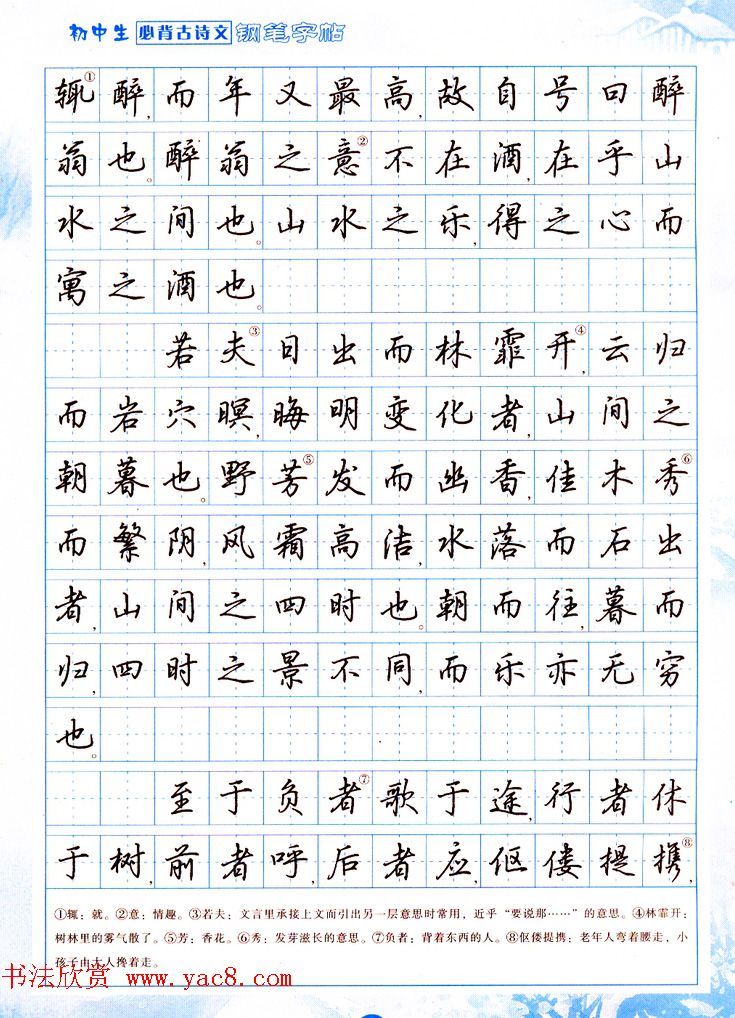 初中生必背古诗文钢笔字帖
辄①醉,而年又最高,故自号曰醉
翁也。醉翁之意②不在酒,在乎山
水之间也。山水之乐,得之心而
寓之酒也。
若夫③日出而林霏开④,云归
而岩穴暝,晦明变化者,山间之
朝暮也。野芳⑤发而幽香,佳木秀⑥
而繁阴,风霜高洁,水落而石出
者,山间之四时也。朝而往,暮而
归,四时之景不同,而乐亦无穷
也。
至于负者⑦歌于途,行者休
于树,前者呼,后者应,伛偻提携⑧
①辄:就。②意:情趣。③若夫:文言里承接上文而引出另一层意思时常用,近乎“要说那……”的意思。④林霏开:
树林里的雾气散了。⑤芳:香花。⑥秀:发芽滋长的意思。⑦负者:背着东西的人。⑧伛偻提携:老年人弯着腰走,小
孩子由大人搀着走。
书法欣赏 www.yac8.com